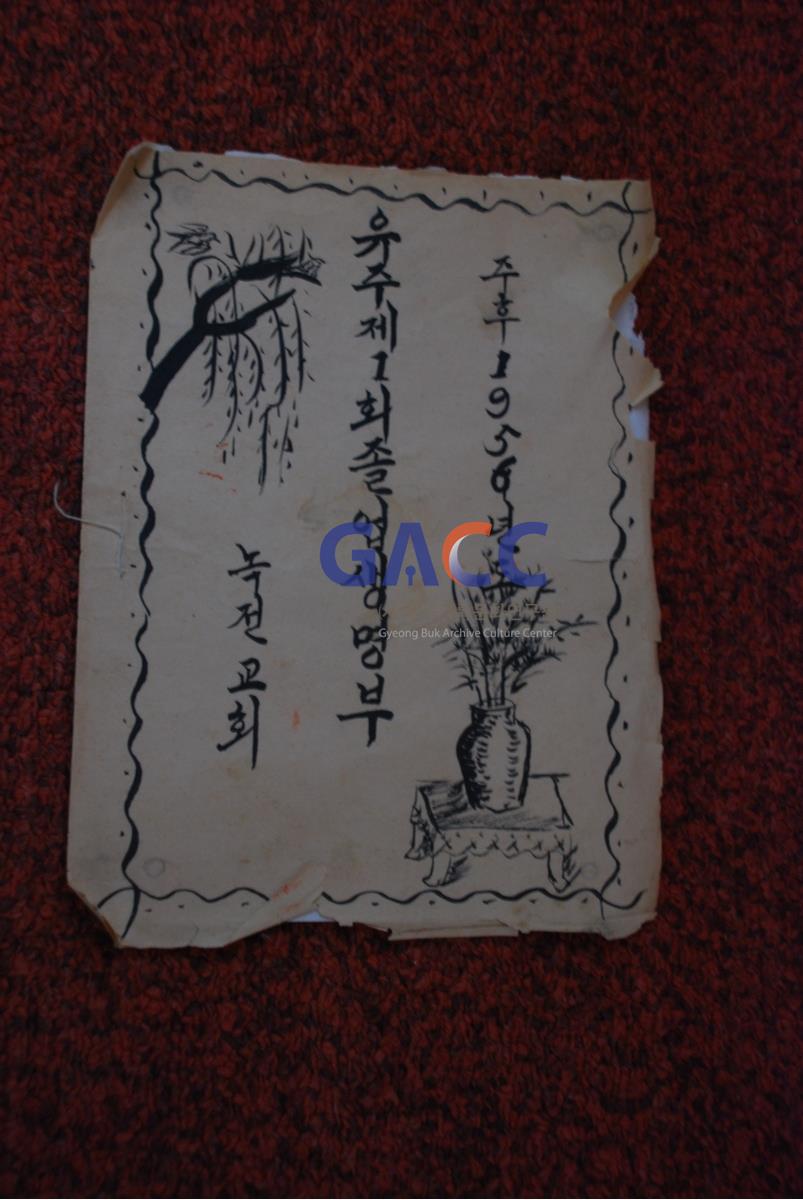 주후1956년도
유주제1회졸업생명부
녹전교회
GACC
Gyeong Buk Archive Culture Center